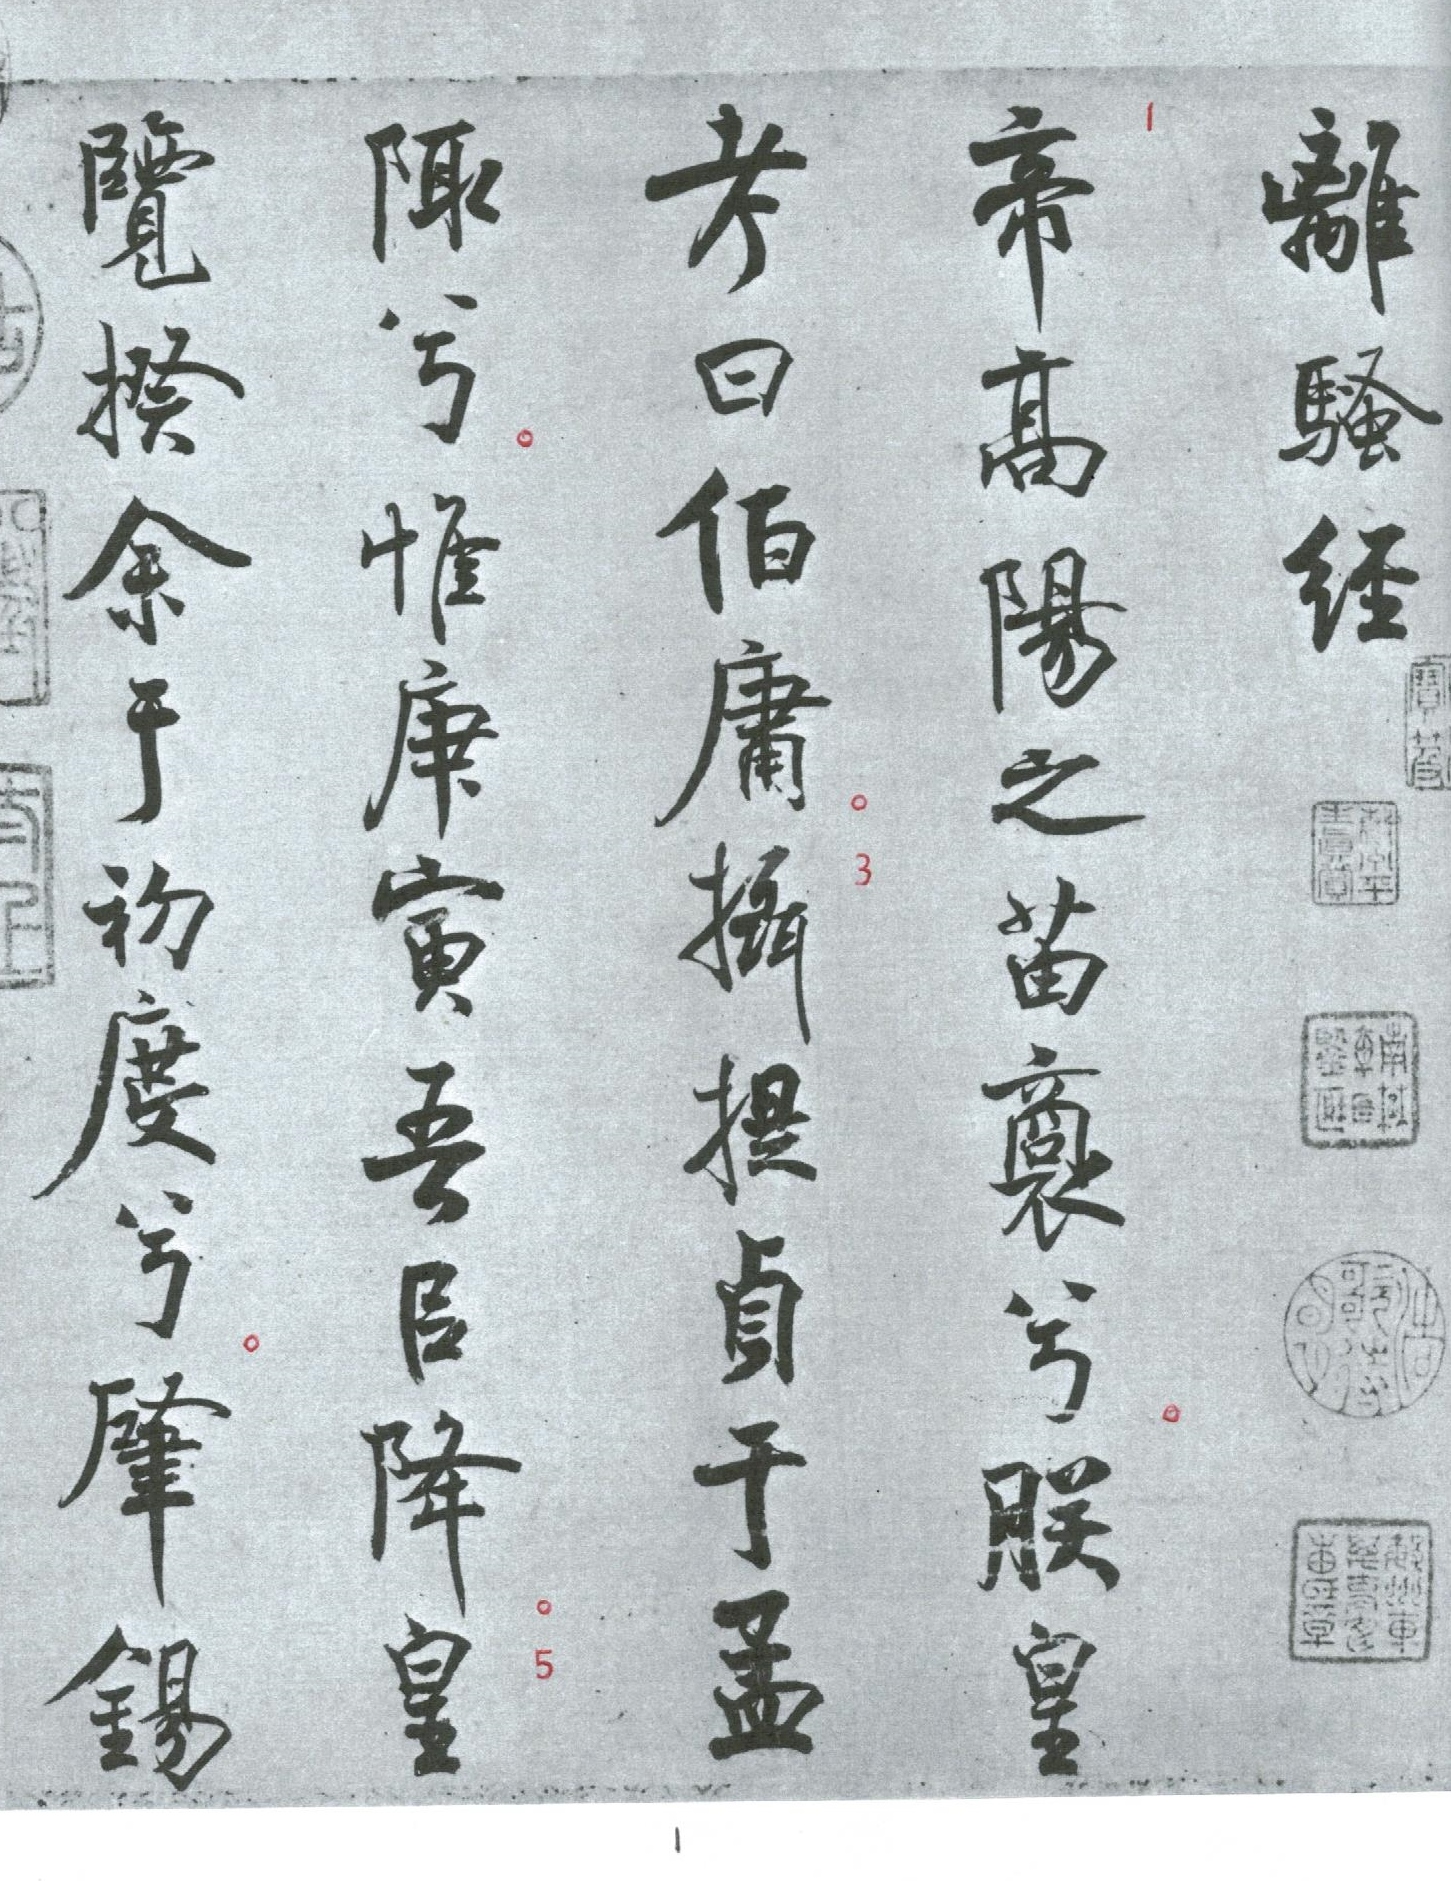 離騷經
1
帝高陽之苗裔兮。朕皇
考曰伯庸。
3
攝提貞于孟
陬兮。惟庚寅吾㠯降。
5
皇
覽揆余于初度兮。肇錫
1